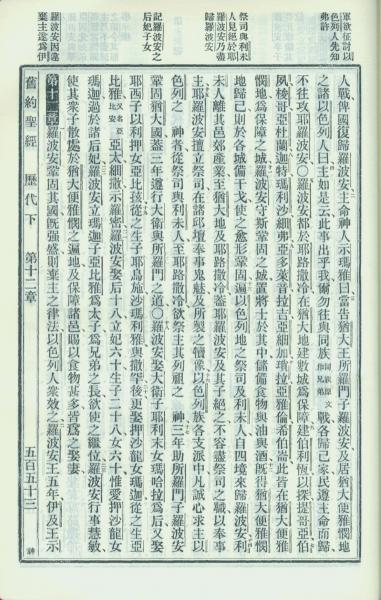 軍欲征討以
色列人先知
弗許
祭司與利未
人見絕於耶
羅波安乃盡
歸羅波安
記羅波安之
后妃子女
羅波安因違
棄主遂爲伊
人戰俾國復歸羅波安主命神人示瑪雅曰當告猶大王所羅門子羅波安及居猶大便雅憫地
之諸以色列人曰主如是云此事出乎我爾勿往與同族同族原文作兄弟戰各歸己家民遵主命而歸
不往攻耶羅波安○羅波安都於耶路撒冷在猶大地建數城爲保障建伯利恆以探提哥亞伯
夙梭哥亞杜蘭迦特瑪利沙細弗亞多萊音拉吉亞細加瑣拉亞雅倫希伯崙此皆在猶大便雅
憫地爲保障之城羅波安守斯鞏固之城置將士於其中儲備食物與油與酒既得猶大便雅憫
地歸己則於各城備干戈使之愈形鞏固遍以色列地之祭司及利未人自四境來歸羅波安利
未人離其邑郊產業至猶大地及耶路撒冷蓋耶羅波安及其子絕之不容盡祭司之職以奉事
主耶羅波安擅立祭司在諸邱壇奉事鬼魅及所製之犢像以色列族各支派中凡誠心求主以
色列之 神者從祭司與利未人至耶路撒冷欲祭主其列祖之 神三年助所羅門子羅波安
鞏固猶大國蓋三年遵行大衛與所羅門之道○羅波安娶大衛子耶利末女瑪哈拉爲后又娶
耶西子以利押女亞比孩從之生子耶烏施沙瑪利雅與撒罕後更娶押沙龍女瑪迦從之生亞
比雅又名亞比安亞太細撒示羅密羅波安娶后十八立妃六十生子二十八女六十惟愛押沙龍女
瑪迦過於諸后妃羅波安立瑪迦子亞比雅爲太子爲兄弟之長欲使之繼位羅波安行事慧敏
使其衆子散處於猶大便雅憫之遍地及保障諸邑賜以食物甚多皆爲之娶妻
第十二章 羅波安鞏固其國既强盛則棄主之律法以色列人衆效之羅波安王五年伊及王示
舊約聖經 歷代下 第十二章 五百五十三 神